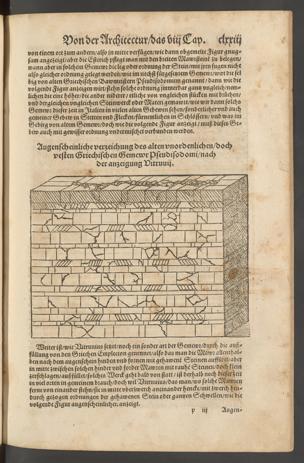 Von der Architectur/das viij Cap. clxxiij
von einem ort zum andern/also in mitte versügen/wie dann obgemelte Figur gnug-
sam anzeiget/aber die Estrich pflegt man mit den breiten Maursteinē zu belegen/
wann aber in solchem Gemeur die leg oder ordnung der Stein mit jren fugen nicht
also gleicher ordnung gelegt werden/wie im nechst fürgesatztem Gemeur/wirt die sel
big von alten Griechischen Bawmeistern Pseudisodomum genannt/ dann wie die
volgende Figur anzeiget wirt solche ordnung jmmerdar ganz vngleich/nem-
lichen die eine höher/die ander niderer/etliche von vngleichen stücken mit brüchen/
vnd dergleichen vngleichen Steinwerck oder Maten gemauret/wie wir dann solchs
Gemeur dieser zeit in Italien in vielen alten Gebewen sehen/sonderlicher vnd auch
gemeiner Gebew in Stetten vnd Flecken/fürnemlichen in Schlössern/ vnd was im
Gebirg von altem Gemeur/doch wie die volgende Figur anzeiget/ muß dieses Ge-
bew auch mit gewisser ordnung verdeumischet verbunden werden.
Augenscheinliche verzeichnung des alten vnordenlichen/doch
vesten Griechischen Gemeur Pseudisodomi/nach
der anzeigung Vitruvij.
Weiter ist/wie Vitruvius setzt/noch ein sonder art der Gemeur/durch die auß-
füllung von den Griechen Emplecton genennet/also das man die Möwr allenthal-
ben nach den angensichten hinden vnd fornen mit gehawnē Steinen aufführt/aber
in mitte zwischen solcher hinder vnd forder Mawren mit rauhē Steinen/doch klein
zerschlagen/außfüllet/solches Werck geht bald von statt/ist derhalb noch dieser zeit
in viel orten in gemeinem brauch/doch wil Vitruvius/das man/wo solche Mawren
ferrn von einander stehn/sie in mitte vberzwerch aneinander hencke/mit zwerch hin-
durch gezogen ordnungen der gehawenen Stein oder ganzen Schwellen/wie die
volgende Figur augenscheinlicher anzeigt.
p iij Augen-